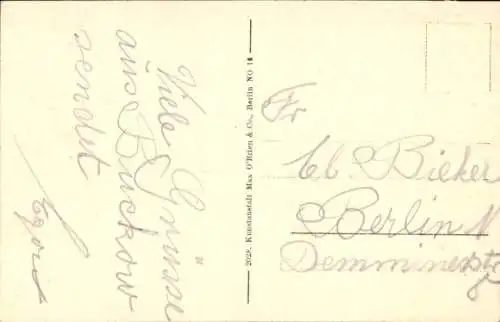 Viele Grüsse
aus Buckow
sendet
2028. Kunstanstalt Max O'Brien & Co., Berlin NO 18
Fr
Bieker
Berlin N
Demminerstr